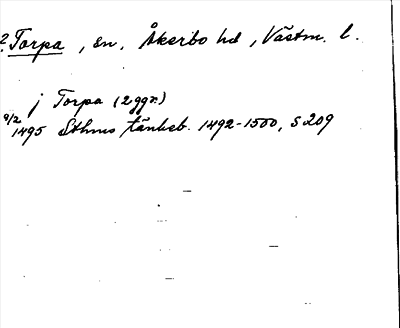 2. Torpa, sn, Åkerbo hd, Västm. l.
j Torpa (2 ggr.)
9/2 1495 Sthms tänkeb. 1492-1500, s 209